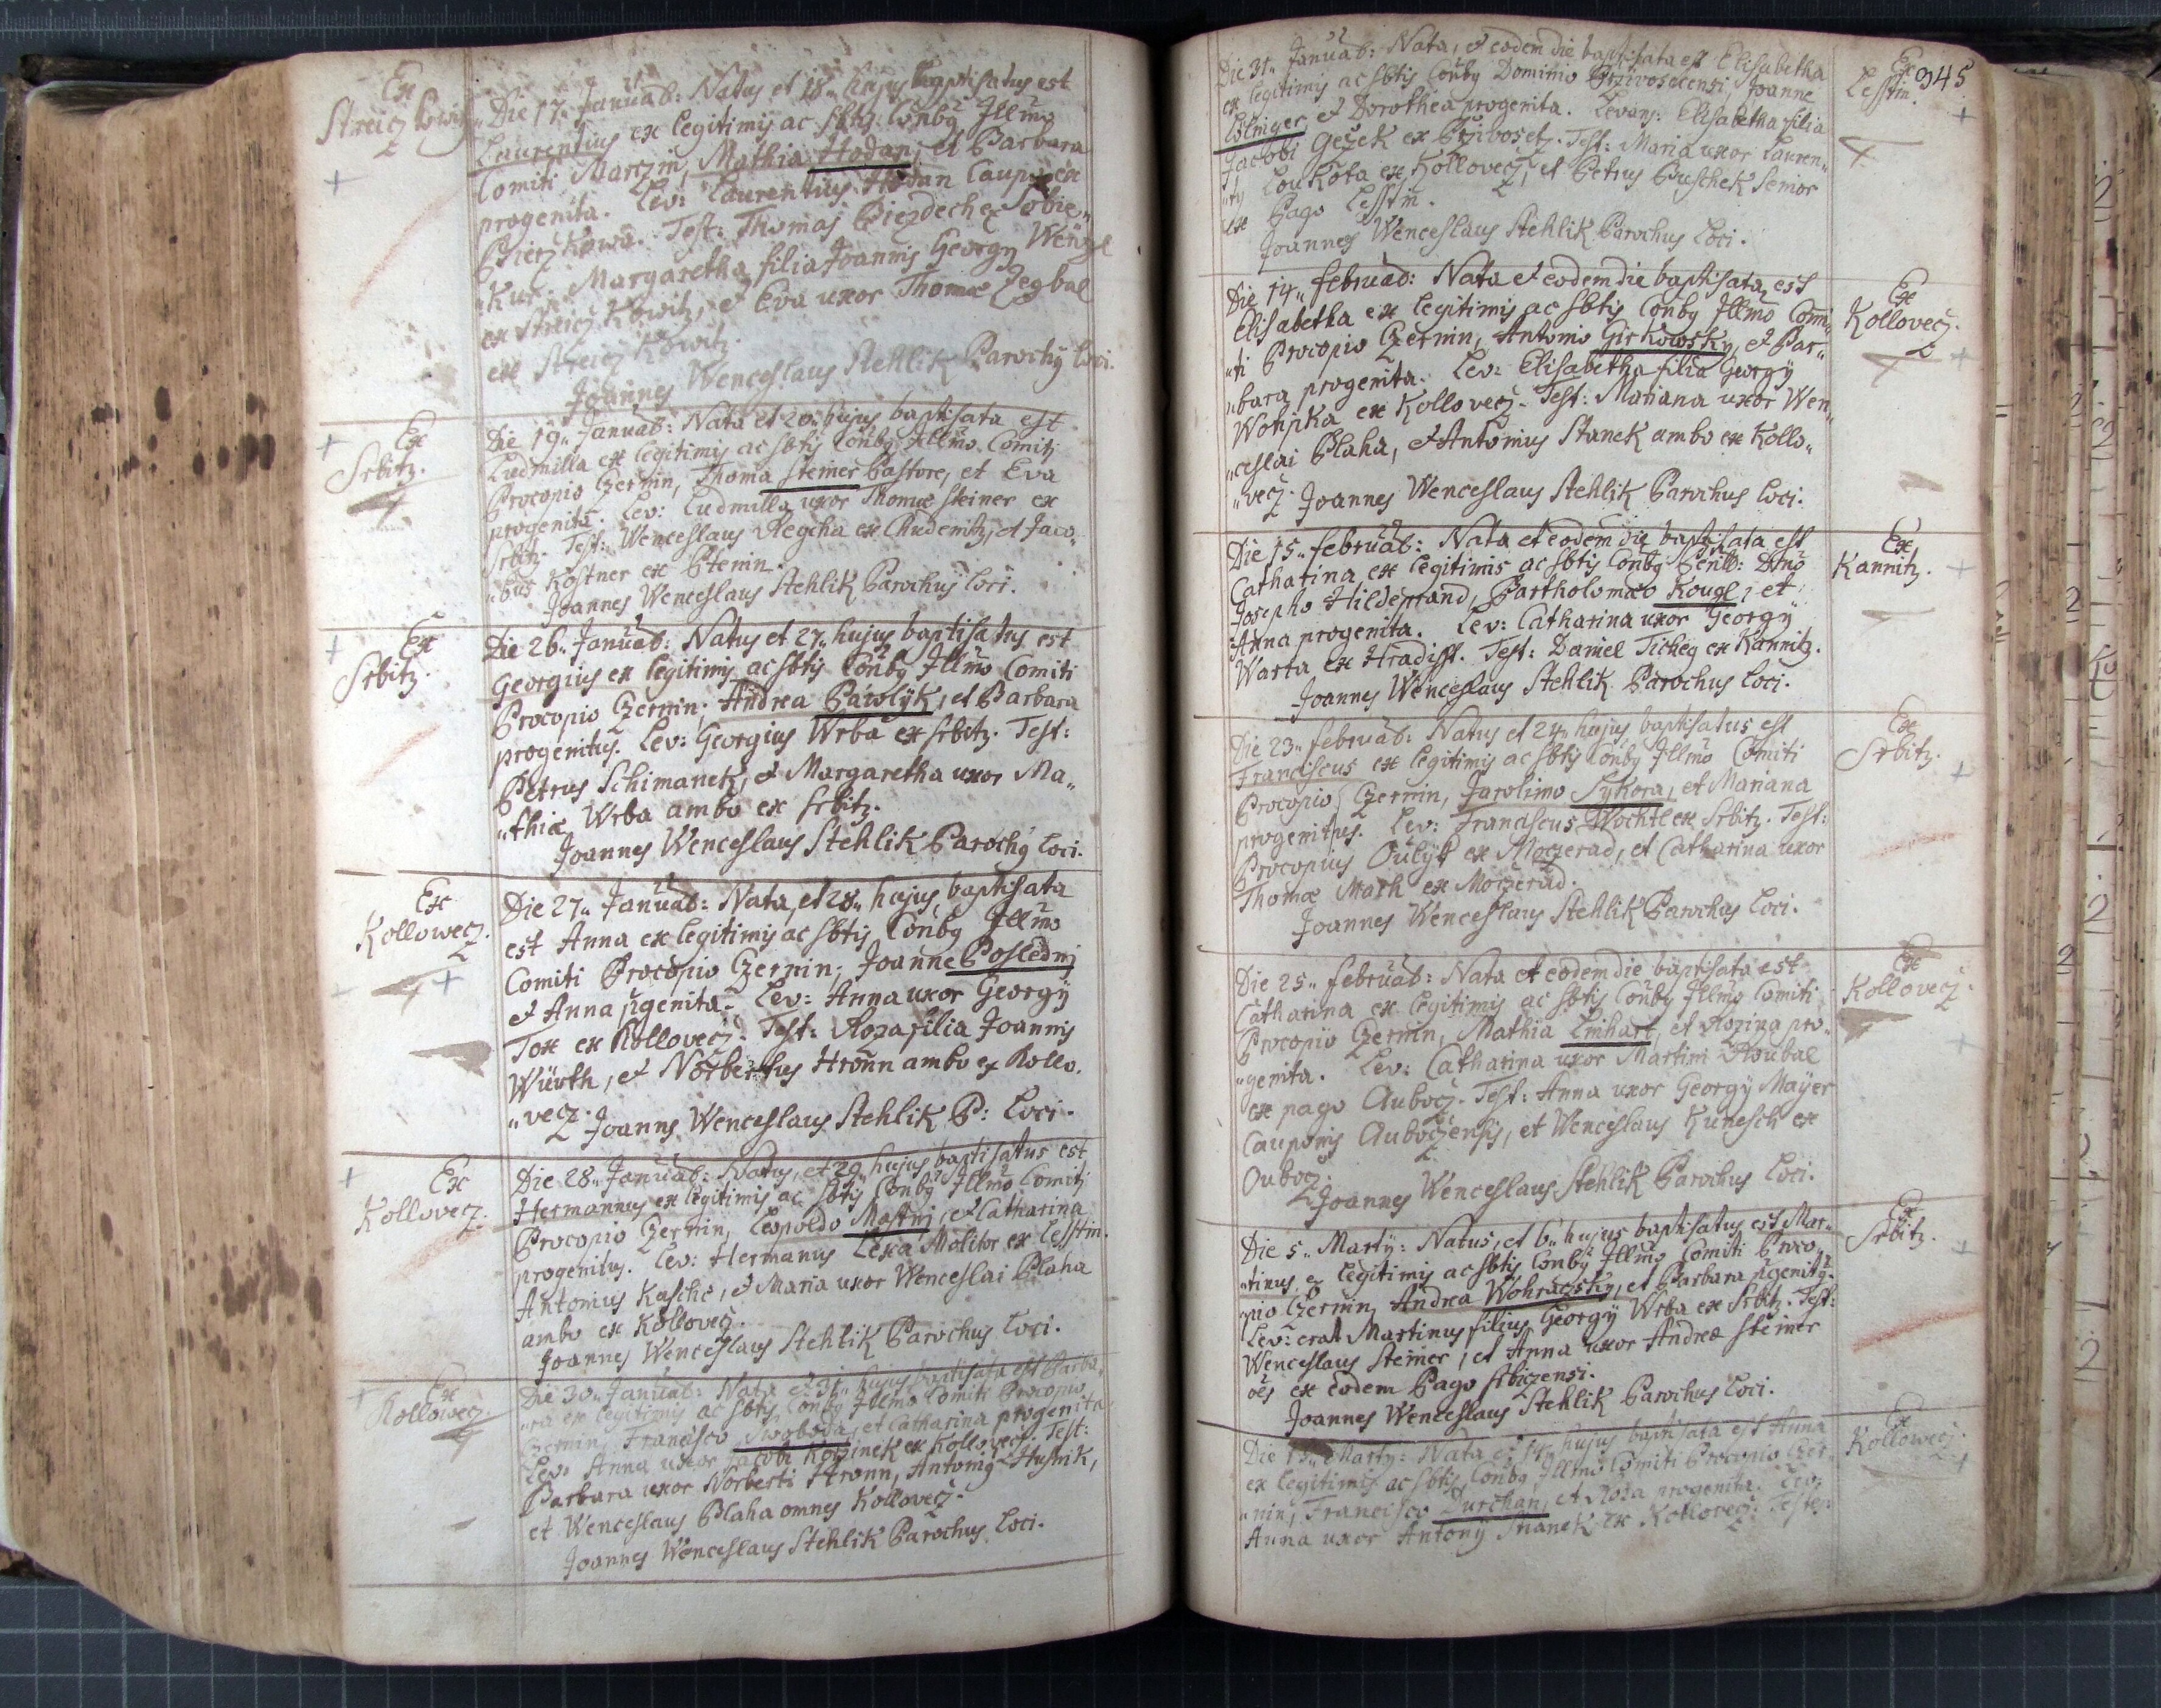 Ex
Streiczkowitz
Die 17. Januarÿ: Natus et 18. hujus baptisatus est
Laurentius ex legitimis ac sbtis Conbg Illmo
Comiti Marczin, Mathia Hodan, et Barbara
progenita. Lev: Laurentius Hodan Caupo ex
Bierzkowa. Test: Thomas Biezdech ex Sobie„
„Kur. Margaretha filia Joannis Georgy Wenzl
ex Streiczkowitz, et Eva uxor Thomæ
ex Streiczkowitz.
Joannes Wenceslaus Stehlik Parochg Loci.
Ex
Srbitz.
Die 19„ Januar: Nata et 20„ hujus baptisata est
Ludmilla ex legitimis ac sbtis Conbg Illmo Comiti
Procopio Czernin, Thoma Steiner Pastore, et Eva
progenita. Lev: Ludmilla uxor Thomæ Steiner ex
Srbitz. Test: Wenceslaus Regcha ex Chudenitz, et Jaco„
„bus Kostner ex Ptenin.
Joannes Wenceslaus Stehlik Parochus Loci.
Ex
Srbitz.
Die 26„ Januar: Natus et 27„ hujus baptisatus est
Georgius ex legitimis ac sbtis Conbg Illmo Comiti
Procopio Czernin, Andrea Pawlyk, et Barbara
progenitus. Lev: Georgius Wrba ex Srbitz. Test:
Petrus Schimanek, et Margaretha uxor Ma„
„thiæ Wrba ambo ex Srbitz.
Joannes Wenceslaus Stehlik Parochg Loci.
Ex
Kollowecz.
Die 27„ Januar: Nata, et 28„ hujus baptisata
est Anna ex legitimis ac sbtis Conbg Illmo
Comiti Procopio Czernin, Joanne Posledni
et Anna pgenita. Lev: Anna uxor Georgÿ
Tox ex Kollovecz. Test: Roza filia Joannis
Würth, et Norbertus Hronn ambo ex Kollo„
„vecz. Joanns Wenceslaus Stehlik P: Loci.
Ex
Kollovecz.
Die 28„ Januar: Natus, et 29„ hujus baptisatus est
Hermannus ex legitimis ac sbtis Conbg Illmo Comiti
Procopio Czernin, Leopoldo Mastnj, et Catharina
progenitus. Lev: Hermanus Lexa Molitor ex Lesstin.
Antonius Kasche, et Maria uxor Wenceslai Blaha
ambo ex Kollovecz.
Joannes Wenceslaus Stehlik Parochus Loci.
Ex
Kollowecz.
Die 30„ Januar: Nata et 31„ hujus baptisata est Barba„
„ra ex legitimis ac sbtis Conbg Illmo Comiti Procopio
Czernin, Francisco Swoboda, et Catharina progenita.
Lev: Anna uxor Jacobi Korzinek ex Kollovecz. Test:
Barbara uxor Norberti Hronn, Antonig Husnik,
et Wenceslaus Blaha omnes Kollovecz.
Joannes Wenceslaus Stehlik Parochus Loci.
945
Ex
Lesstin.
Die 31„ Januar: Nata, et eodem die baptisata est Elisabetha
ex legitimis ac sbtis Conbg Domino Przivosecensi, Joanne
et Dorothea progenita. Levans: Elisabetha filia
Jacobi Gezek ex Przivosetz. Test: Maria uxor Lauren„
„tij Loukota ex Kollovecz, et Petrus Puschek senior
ex Pago Lesstin.
Joannes Wenceslaus Stehlik Parochus Loci.
Ex
Kollovecz.
Die 14„ Februar: Nata et eodem die baptisata est
Elisabetha ex legitimis ac sbtis Conbg Illmo Comi„
„ti Procopio Czernin, Antonio Girkowsky, et Bar„
„bara progenita. Lev: Elisabetha filia Georgÿ
Wohnka ex Kollovecz. Test: Mariana uxor Wen„
„ceslai Blaha, et Antonius Stanek ambo ex Kollo„
„vecz. Joannes Wenceslaus Stehlik Parochus Loci.
Ex
Kannitz.
Die 15„ Februar: Nata et eodem die baptisata est
Catharina ex legitimis ac sbtis Conbg Dno
Josepho Hildeprand, Bartholomæo Kougl, et
Anna progenita. Lev: Catharina uxor Georgÿ
Warta ex Hradisst. Test: Daniel Ticheg ex Kannitz.
Joannes Wenceslaus Stehlik Parochus Loci.
Ex
Srbitz.
Die 23„ Februar: Natus et 24„ hujus baptisatus est
Franciscus ex legitimis ac sbtis Conbg Illmo Comiti
Procopio Czernin, Jarolimo Sykora, et Mariana
progenitus. Lev: Franciscus Wochtl ex Srbitz. Test:
Procopius Oulyk ex Moczerad, et Catharina uxor
Thomæ Math ex Moczerad.
Joannes Wenceslaus Stehlik Parochus Loci.
Ex
Kollovecz.
Die 25„ Februar: Nata et eodem die baptisata est
Catharina ex legitimis ac sbtis Conbg Illmo Comiti
Procopio Czernin, Mathia Linhart, et Rozina pro„
„genita. Lev: Catharina uxor Martini Hrubal
ex pago Aubocz. Test: Anna uxor Georgÿ Mayer
Cauponis Auboczensis, et Wenceslaus Kunesch ex
Oubocz.
Joannes Wenceslaus Stehlik Parochus Loci.
Ex
Srbitz.
Die 5„ Martÿ: Natus, et 6„ hujus baptisatus est Mar„
„tinus ex legitimis ac sbtis Conbg Illmo Comiti Proco„
„pio Czernin, Andrea Wohraczsky, et Barbara pgenitg.
Lev: erat Martinus filius Georgÿ Wrba ex Srbitz. Test:
Wenceslaus Steiner, et Anna uxor Andreæ Steiner
oes ex eodem Pago Srbiczensi.
Joannes Wenceslaus Stehlik Parochus Loci.
Ex
Kollowecz.
Die 13„ Martÿ: Nata et 14„ hujus baptisata est Anna
ex legitimis ac sbtis Conbg Illmo Comiti Procopio Czer„
„nin, Francisco Durchan, et Roza progenita. Lev:
Anna uxor Antonÿ Stanek ex Kollovecz. Testes: